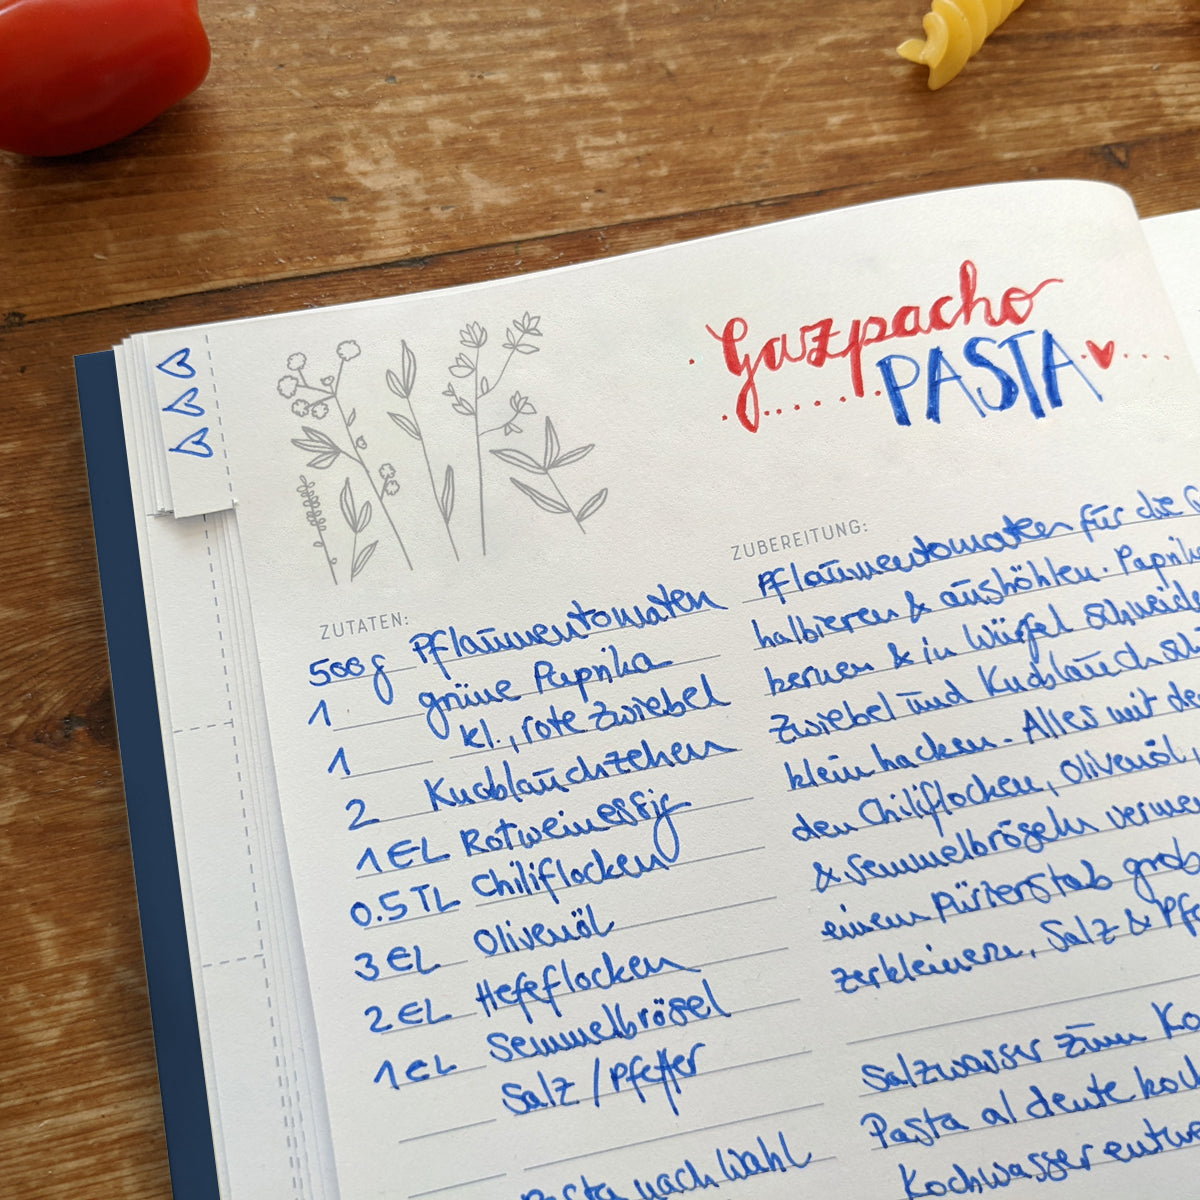 Gazpacho
PASTA
ZUTATEN:
500g Pflaumentomaten
1 grüne Paprika
1 kl., rote Zwiebel
2 Knoblauchzehen
1 EL Rotweinessig
0.5 TL Chiliflocken
3 EL Olivenöl
2 EL Hefeflocken
1 EL Semmelbrösel
Salz / Pfeffer
Pasta nach Wahl
ZUBEREITUNG:
Pflaumentomaten für die
halbieren & aushöhlen. Paprika
kernen & in Würfel schneide
Zwiebel und Knoblauch
klein hacken. Alles mit
den Chiliflocken, Olivenöl
& Semmelbröseln
einem Pürierstab grob
zerkleinern, Salz &
Salzwasser zum
Pasta al dente
Kochwasser